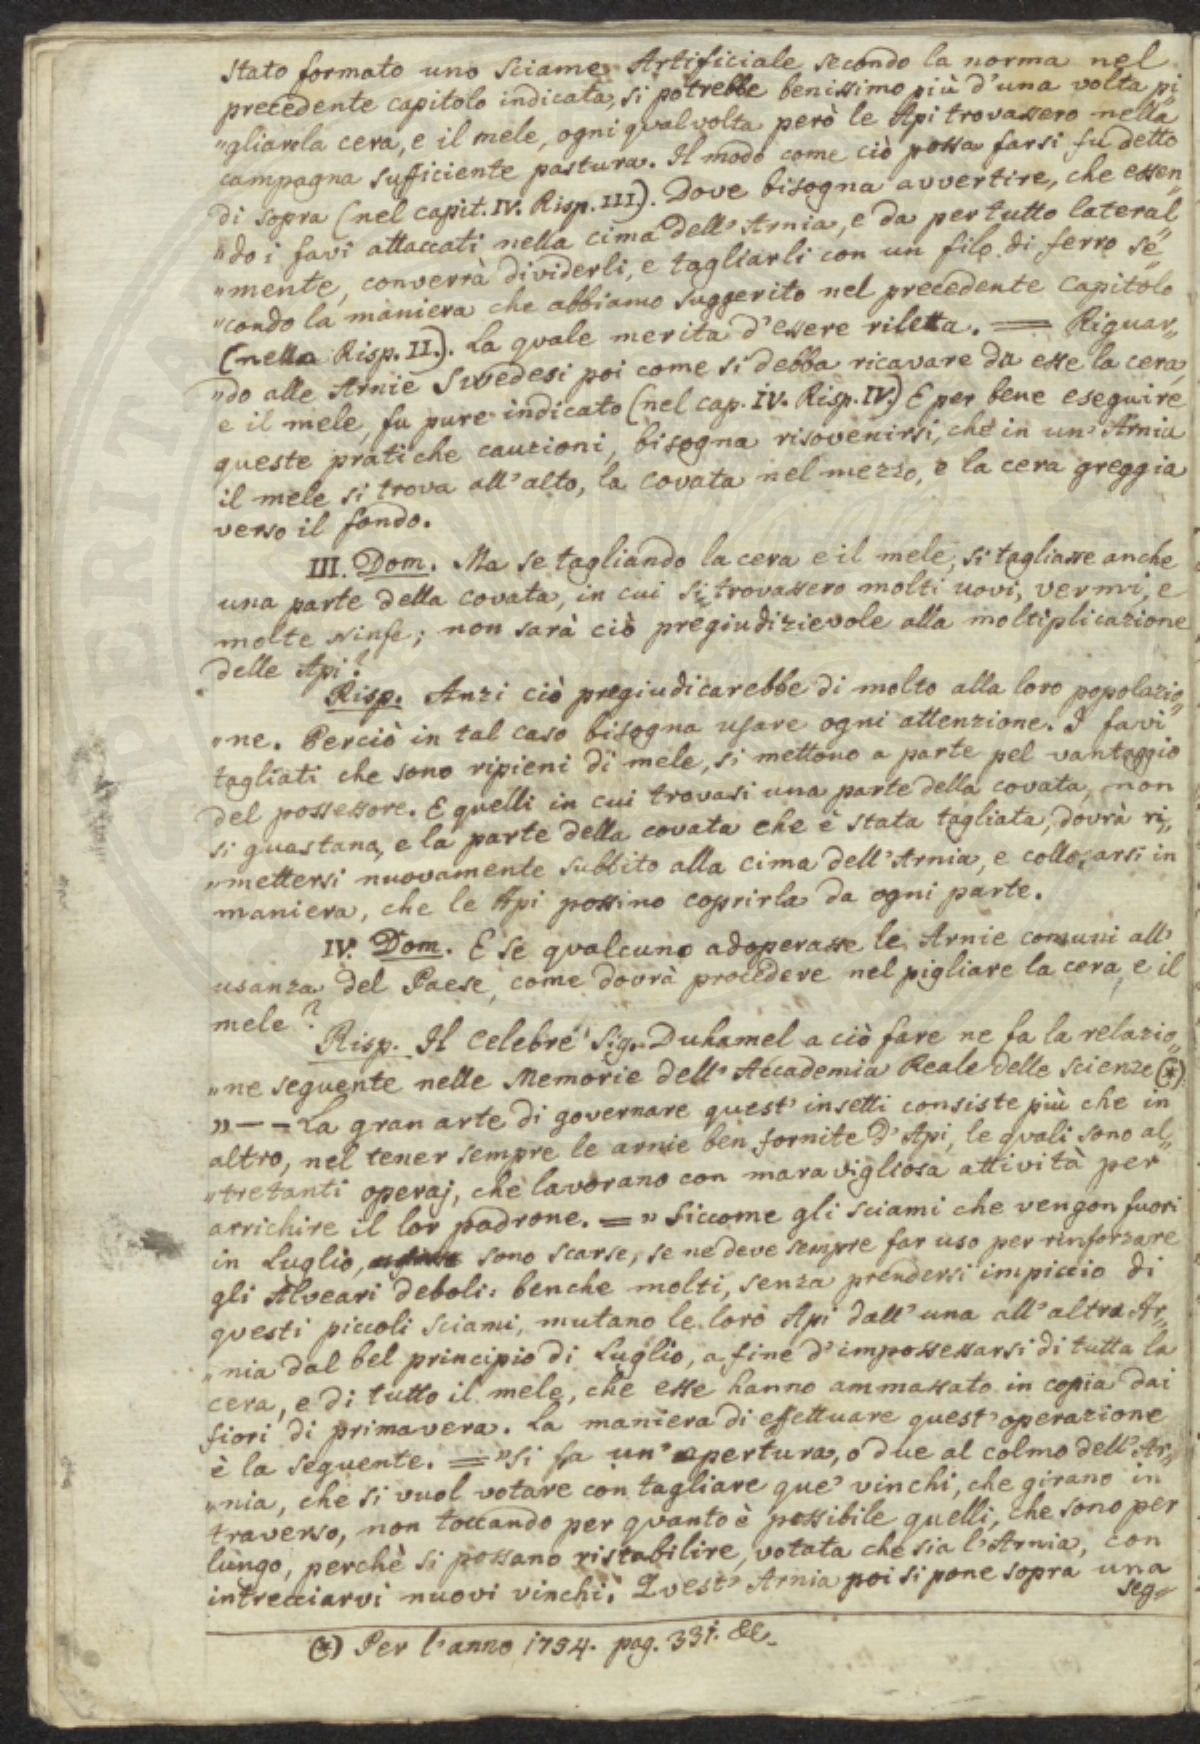 stato formato uno sciame Artificiale secondo la norma nel
precedente capitolo indicata, si potrebbe benissimo più d'una volta pi„
„gliare la cera, e il mele, ogni qualvolta però le Api trovassero nella
campagna sufficiente pastura. Il modo come ciò possa farsi fu detto
di sopra (nel capit. IV. Risp. III.). Dove bisogna avvertire, che essen„
„do i favi attaccati nella cima dell'Arnia, e da per tutto lateral„
„mente, converrà dividerli, e tagliarli con un filo di ferro se„
„condo la maniera che abbiamo suggerito nel precedente Capitolo
(nella Risp. II.). La quale merita d'essere riletta. = Riguar„
„do alle Arnie Swedesi poi come si debba ricavare da esse la cera,
e il mele, fu pure indicato (nel cap. IV. Risp. IV.) E per bene eseguire
queste pratiche cauzioni, bisogna risovenirsi, che in un'Arnia
il mele si trova all'alto, la covata nel mezzo, e la cera greggia
verso il fondo.
III. Dom. Ma se tagliando la cera e il mele, si tagliasse anche
una parte della covata, in cui si trovassero molti uovi, vermi, e
molte Ninfe; non sarà ciò pregiudizievole alla moltiplicazione
delle Api?
Risp. Anzi ciò pregiudicarebbe di molto alla loro popolazio„
„ne. Perciò in tal caso bisogna usare ogni attenzione. I favi
tagliati che sono ripieni di mele, si mettono a parte pel vantaggio
del possessore. E quelli in cui trovasi una parte della covata, non
si guastano, e la parte della covata che è stata tagliata, dovrà ri„
„mettersi nuovamente subbito alla cima dell'Arnia, e collocarsi in
maniera, che le Api possino coprirla da ogni parte.
IV. Dom. E se qualcuno adoperasse le Arnie comuni all'
usanza del Paese, come dovrà procedere nel pigliare la cera, e il
mele?
Risp. Il Celebre Sig. Duhamel a ciò fare ne fa la relazio„
„ne seguente nelle Memorie dell'Accademia Reale delle Scienze (*)
„ — — La gran arte di governare quest'insetti consiste più che in
altro, nel tener sempre le arnie ben fornite d'Api, le quali sono al„
„tretanti operaj, che lavorano con maravigliosa attività per
arrichire il lor padrone. = „ Siccome gli sciami che vengon fuori
in Luglio, sono scarse, se ne deve sempre far uso per rinforzare
gli Alveari deboli: benche molti, senza prendersi impiccio di
questi piccoli sciami, mutano le loro Api dall'una all'altra Ar„
„nia dal bel principio di Luglio, a fine d'impossessarsi di tutta la
cera, e di tutto il mele, che esse hanno ammassato in copia dai
fiori di primavera. La maniera di effettuare quest'operazione
è la seguente. = „Si fa un'apertura, o due al colmo dell'Ar„
„nia, che si vuol votare con tagliare que' vinchi, che girano in
traverso, non toccando per quanto è possibile quelli, che sono per
lungo, perchè si possano ristabilire, votata che sia l'Arnia, con
intrecciarvi nuovi vinchi. Quest'Arnia poi si pone sopra una
seg„
(*) Per l'anno 1754. pag. 331. &c.